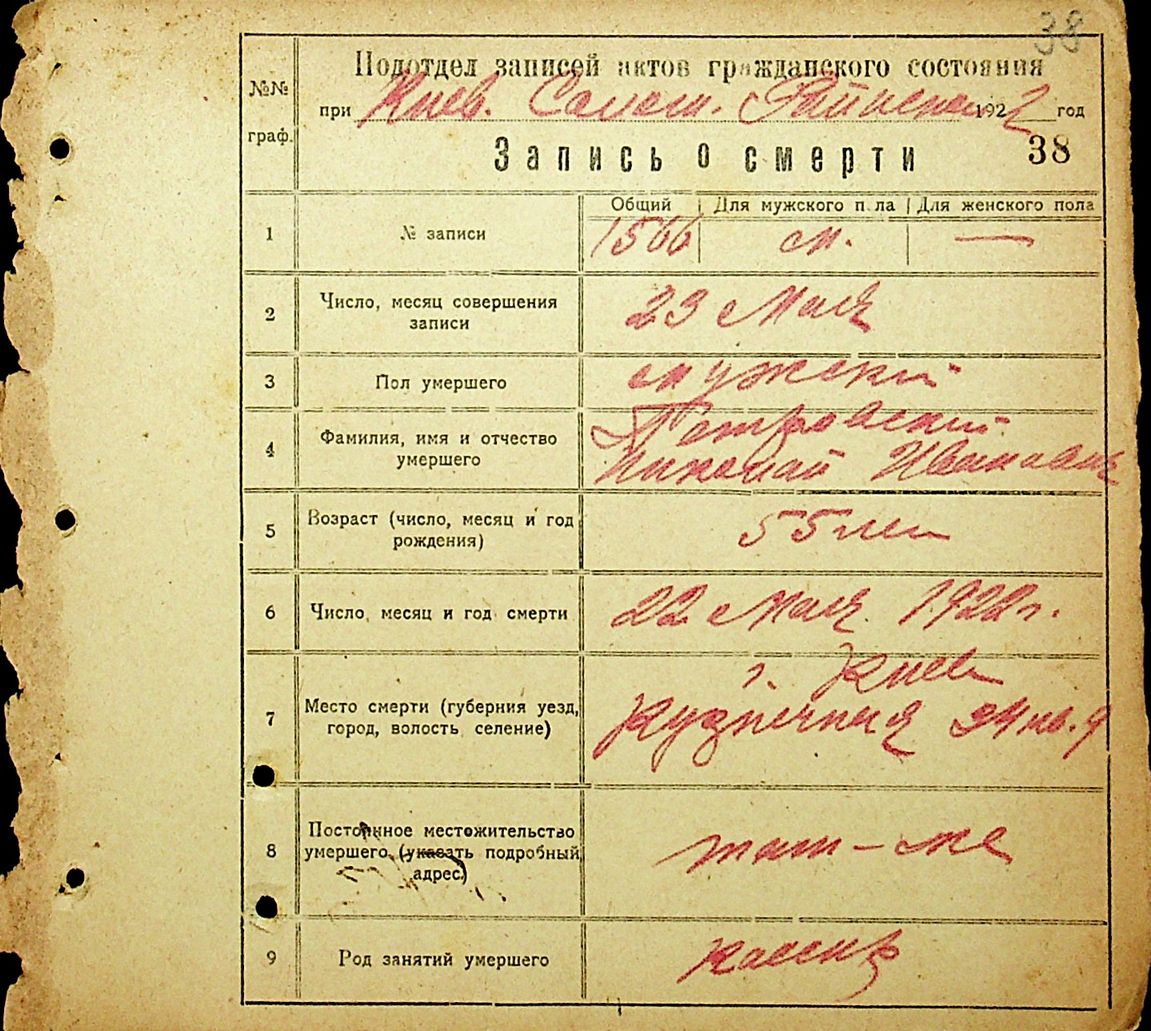 38
№№ граф.
Подотдел записей актов гражданского состояния
при Киев. Солом. Райиспол 1922 год
Запись о смерти 38
Общий | Для мужского пола | Для женского пола
1 № записи 1566 м. —
2 Число, месяц совершения записи 23 Мая
3 Пол умершего мужской
4 Фамилия, имя и отчество умершего Петровский
Николай Иванович
5 Возраст (число, месяц и год рождения) 55 лет
6 Число, месяц и год смерти 22 Мая 1922 г.
7 Место смерти (губерния уезд, город, волость селение) г. Киев
Кузнечная 24 кв. 9
8 Постоянное местожительство умершего (указать подробный адрес) там-же
9 Род занятий умершего кассир